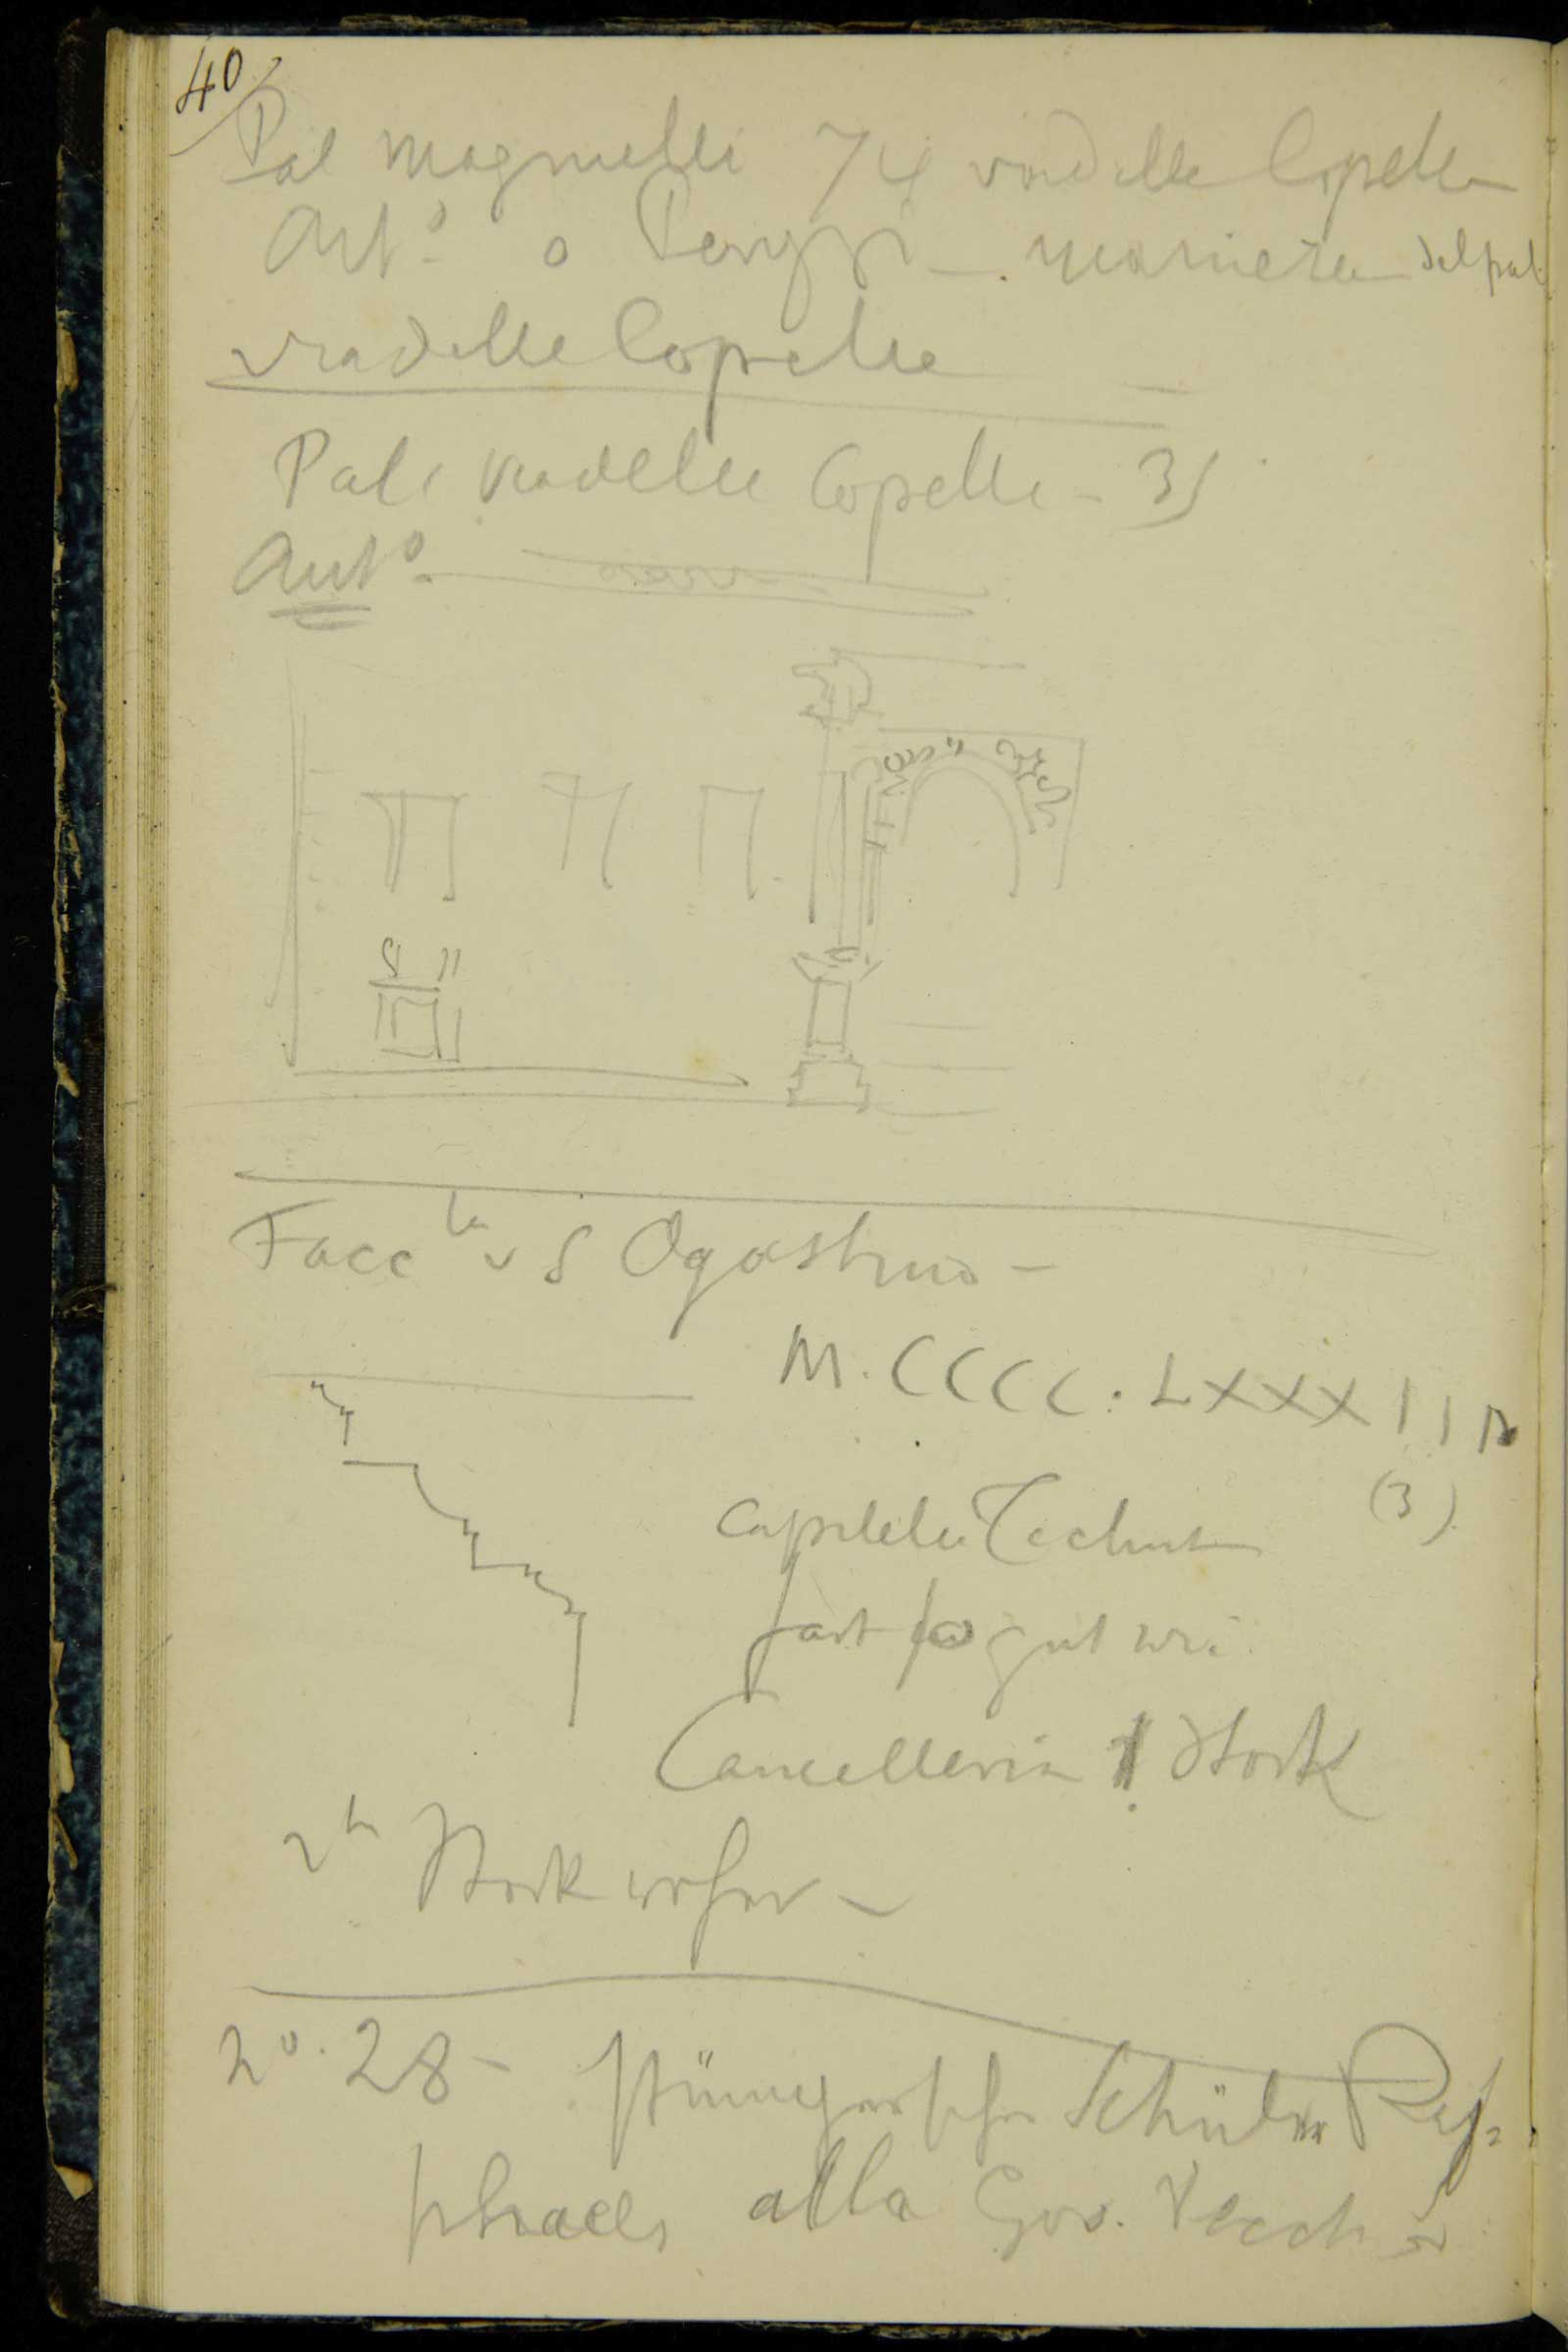 40
Pal Magnielli 74 via delle Copelle
Ant.o o Peruzzi – maniera del pal.
via delle Copelle
Pal. via delle Copelle – 35
Ant.o
Facc ta v S Agostino –
M.CCCC.LXXXIII
(3)
capitelle Technik
fast so gut wie
Cancelleria 1 Stock
2tn Stock roher –
20. 28 – jüngerer Schüler Raf=
phaels alla Gov. Vecch